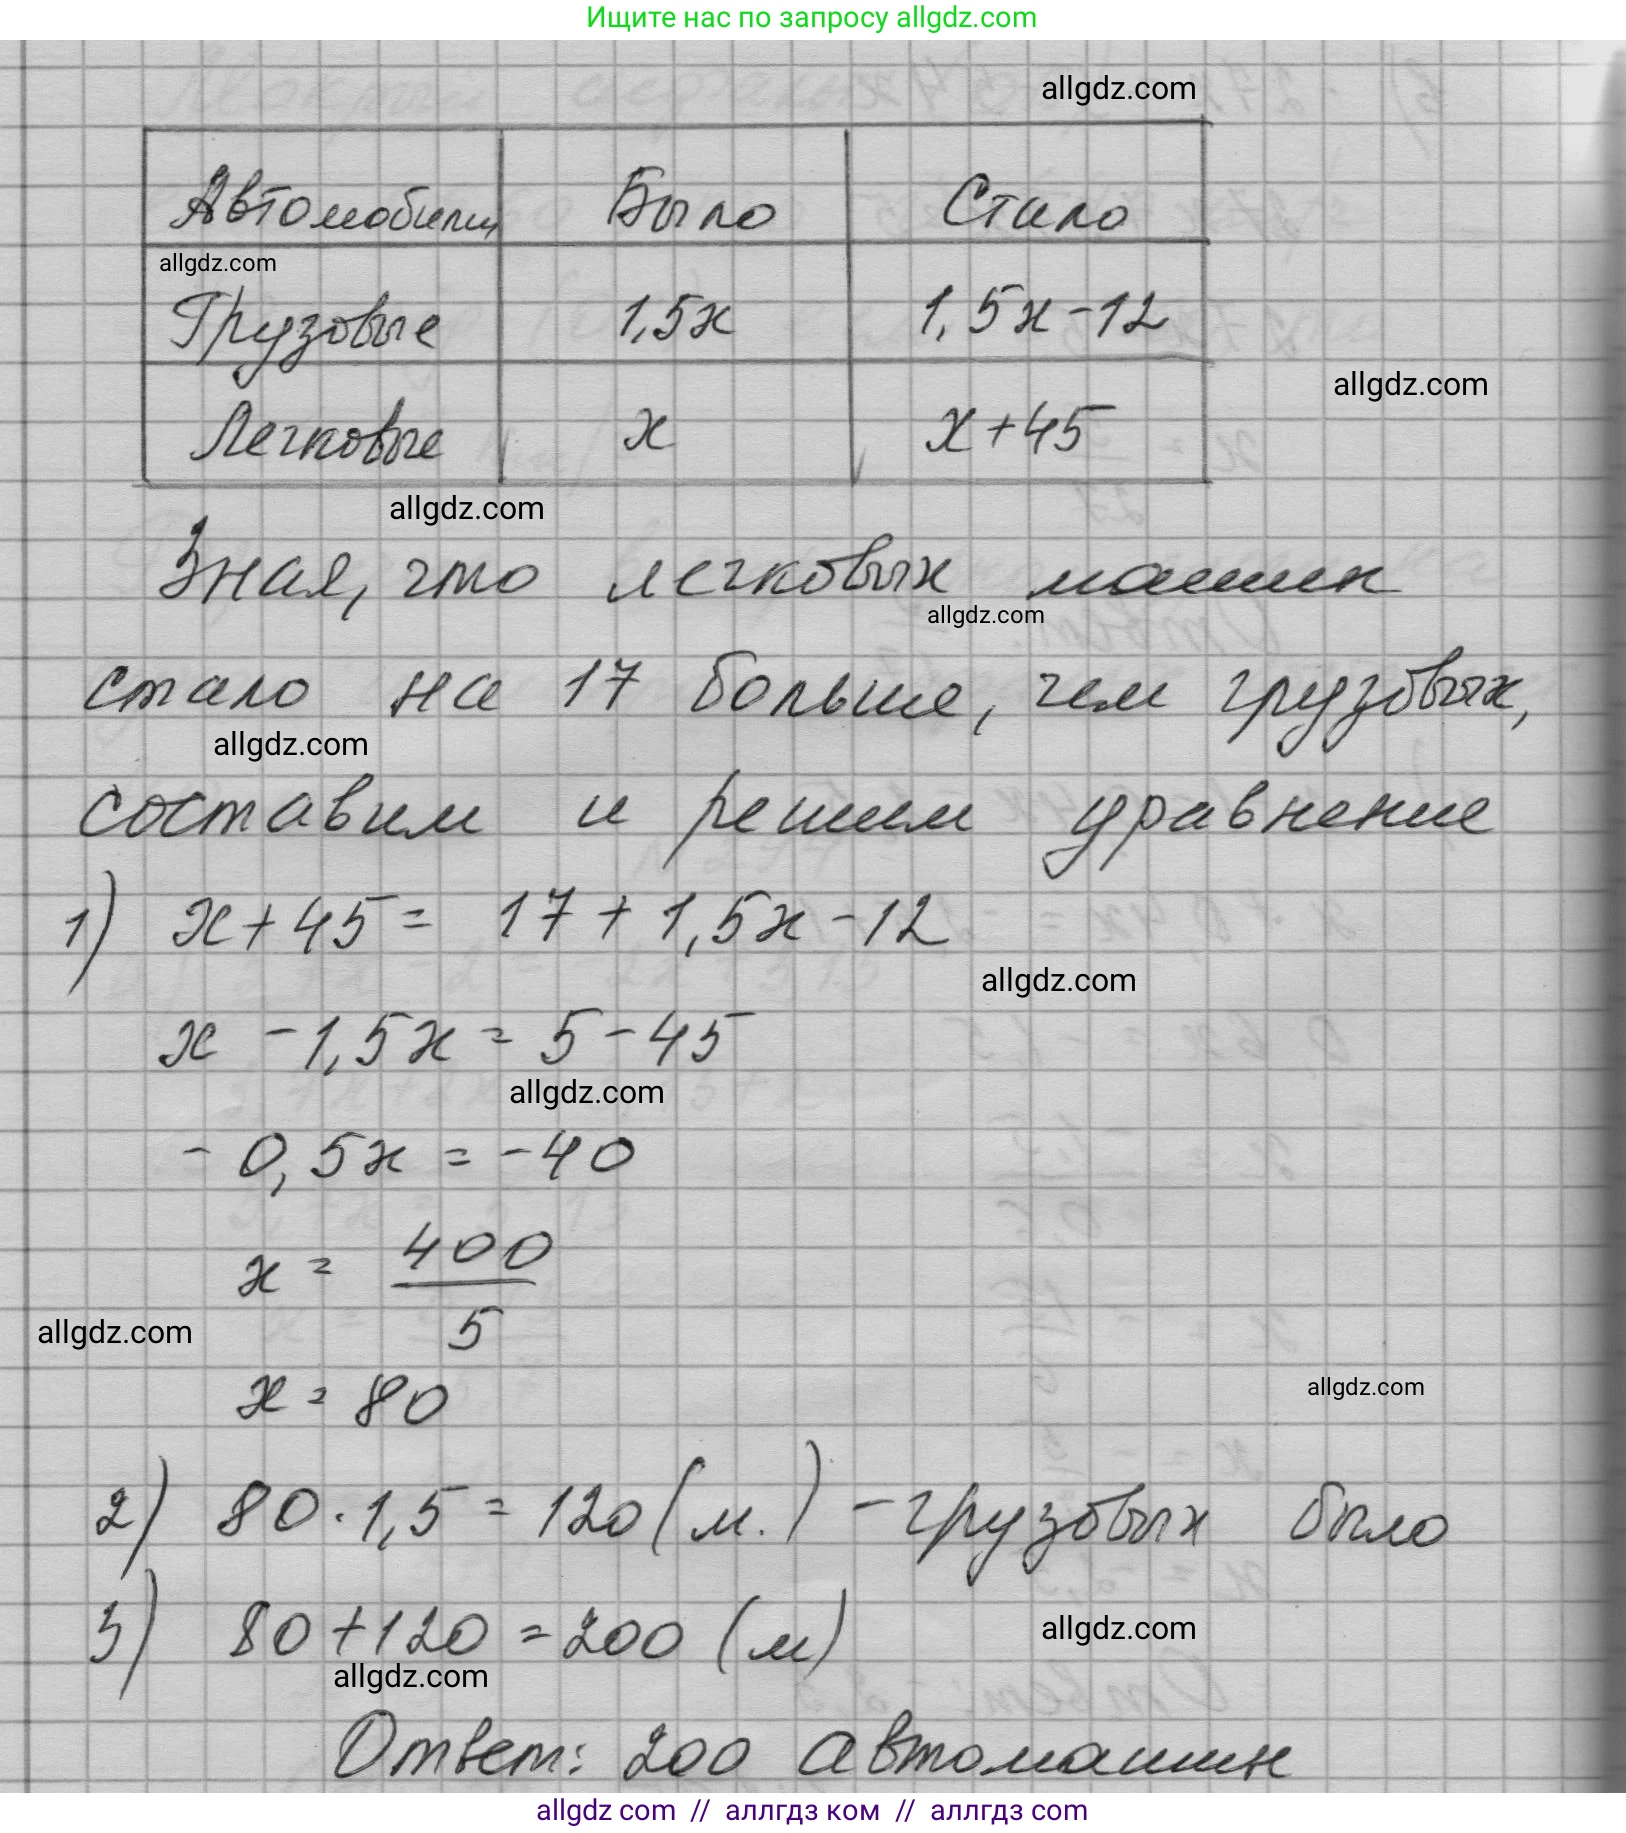 Ищите нас по запросу allgdz.com
allgdz.com
Автомобили Было Стало
allgdz.com
Грузовые 1,5x 1,5x-12
allgdz.com
Легковые x x+45
allgdz.com
Зная, что легковых машин
allgdz.com
стало на 17 больше, чем грузовых,
allgdz.com
составим и решим уравнение
1) x+45= 17+1,5x-12
allgdz.com
x -1,5x = 5-45
allgdz.com
-0,5x = -40
x = 400/5
allgdz.com
x = 80
allgdz.com
2) 80·1,5=120(м.) - грузовых было
3) 80+120=200 (м)
allgdz.com
allgdz.com
Ответ: 200 автомашин
allgdz com // аллгдз ком // аллгдз com